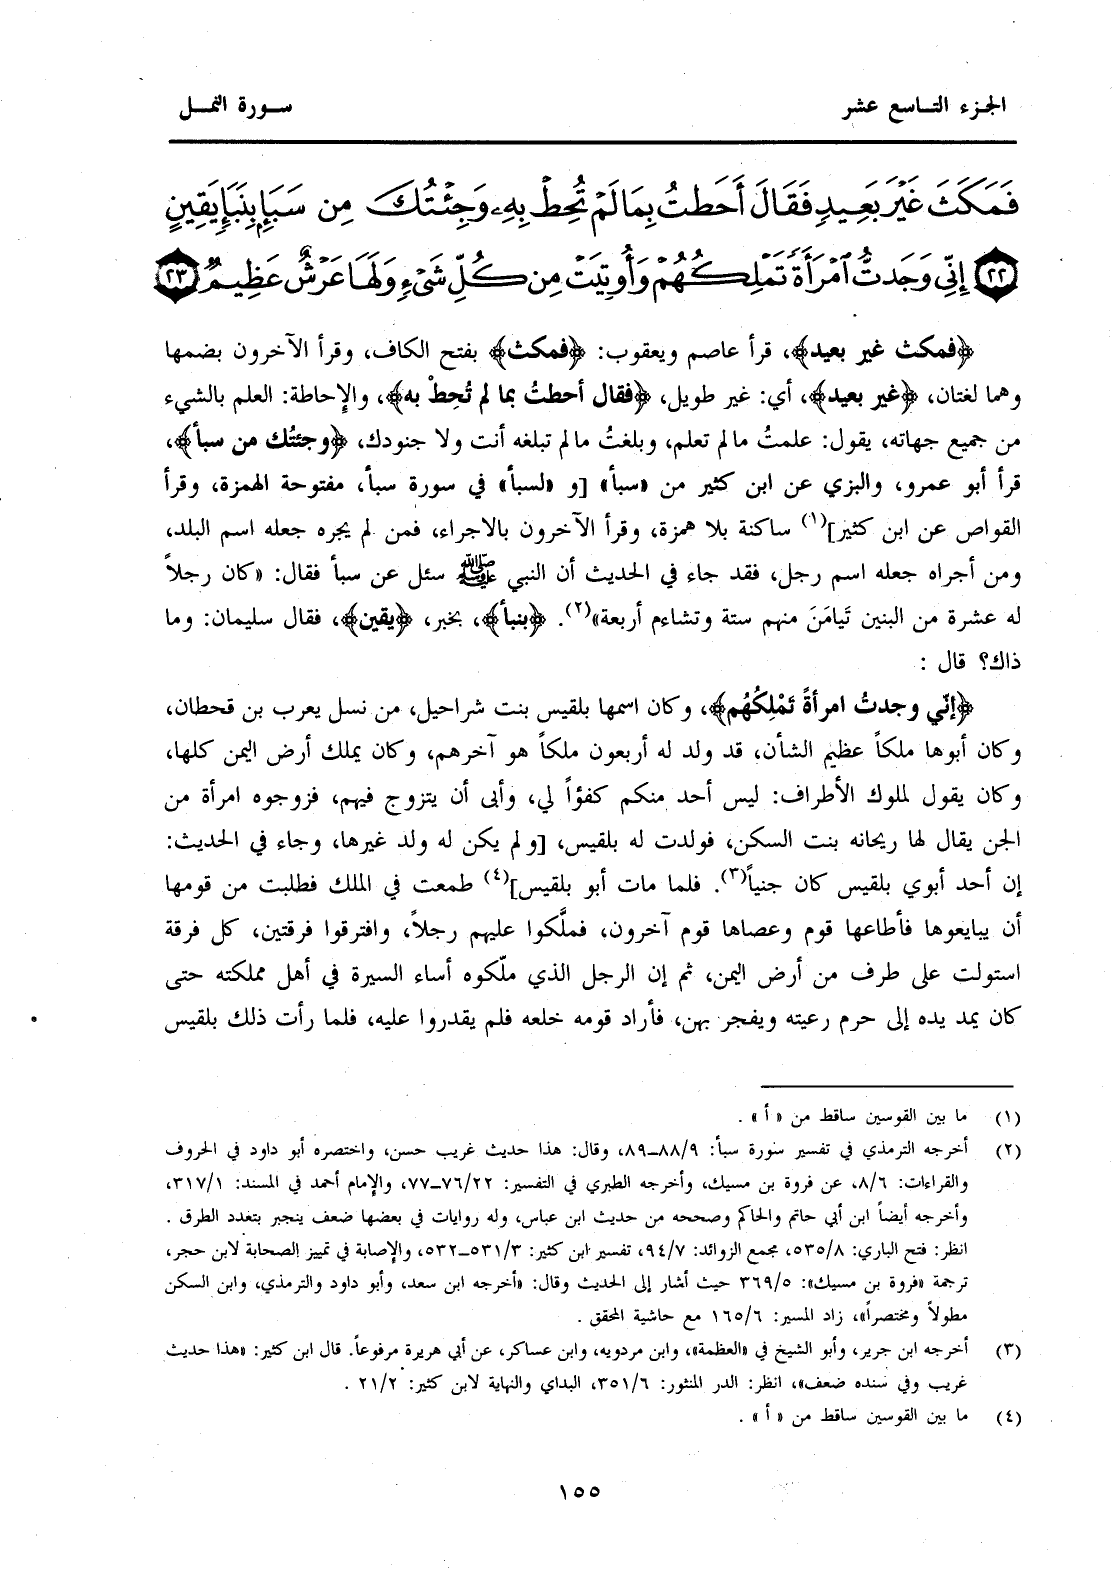 الجزء التاسع عشر
سورة النمل
فَمَكَثَ غَيْرَ بَعِيدٍ فَقَالَ أَحَطتُ بِمَا لَمْ تُحِطْ بِهِۦ وَجِئْتُكَ مِن سَبَإٍ بِنَبَإٍ يَقِينٍ
٢٢ إِنِّى وَجَدتُّ ٱمْرَأَةً تَمْلِكُهُمْ وَأُوتِيَتْ مِن كُلِّ شَىْءٍ وَلَهَا عَرْشٌ عَظِيمٌ ٢٣
﴿فمكث غير بعيد﴾، قرأ عاصم ويعقوب: ﴿فمكث﴾ بفتح الكاف، وقرأ الآخرون بضمها
وهما لغتان، ﴿غير بعيد﴾، أي: غير طويل، ﴿فقال أحطتُ بما لم تُحِطْ به﴾، والإحاطة: العلم بالشيء
من جميع جهاته، يقول: علمتُ مالم تعلم، وبلغتُ مالم تبلغه أنت ولا جنودك، ﴿وجئتُك من سبأ﴾،
قرأ أبو عمرو، والبزي عن ابن كثير من «سبأ» [و «لسبأ» في سورة سبأ، مفتوحة الهمزة، وقرأ
القواص عن ابن كثير](١) ساكنة بلا همزة، وقرأ الآخرون بالاجراء، فمن لم يجره جعله اسم البلد،
ومن أجراه جعله اسم رجل، فقد جاء في الحديث أن النبي ﷺ سئل عن سبأ فقال: «كان رجلاً
له عشرة من البنين تَيامَنَ منهم ستة وتشاءم أربعة»(٢). ﴿بنبأ﴾، بخبر، ﴿يقين﴾، فقال سليمان: وما
ذاك؟ قال :
﴿إنّي وجدتُ امرأةً تَمْلِكُهُم﴾، وكان اسمها بلقيس بنت شراحيل، من نسل يعرب بن قحطان،
وكان أبوها ملكاً عظيم الشأن، قد ولد له أربعون ملكاً هو آخرهم، وكان يملك أرض اليمن كلها،
وكان يقول لملوك الأطراف: ليس أحد منكم كفؤاً لي، وأبى أن يتزوج فيهم، فزوجوه امرأة من
الجن يقال لها ريحانه بنت السكن، فولدت له بلقيس، [و لم يكن له ولد غيرها، وجاء في الحديث:
إن أحد أبوي بلقيس كان جنياً(٣). فلما مات أبو بلقيس](٤) طمعت في الملك فطلبت من قومها
أن يبايعوها فأطاعها قوم وعصاها قوم آخرون، فملَّكوا عليهم رجلاً، وافترقوا فرقتين، كل فرقة
استولت على طرف من أرض اليمن، ثم إن الرجل الذي ملّكوه أساء السيرة في أهل مملكته حتى
كان يمد يده إلى حرم رعيته ويفجر بهن، فأراد قومه خلعه فلم يقدروا عليه، فلما رأت ذلك بلقيس
(١) ما بين القوسين ساقط من « أ » .
(٢) أخرجه الترمذي في تفسير سورة سبأ: ٨٨/٩ــ٨٩، وقال: هذا حديث غريب حسن، واختصره أبو داود في الحروف
والقراءات: ٨/٦، عن فروة بن مسيك، وأخرجه الطبري في التفسير: ٧٦/٢٢ــ٧٧، والإمام أحمد في المسند: ٣١٧/١،
وأخرجه أيضاً ابن أبي حاتم والحاكم وصححه من حديث ابن عباس، وله روايات في بعضها ضعف ينجبر بتعدد الطرق .
انظر: فتح الباري: ٥٣٥/٨، مجمع الزوائد: ٩٤/٧، تفسير ابن كثير: ٥٣١/٣ــ٥٣٢، والإصابة في تمييز الصحابة لابن حجر،
ترجمة «فروة بن مسيك»: ٣٦٩/٥ حيث أشار إلى الحديث وقال: «أخرجه ابن سعد، وأبو داود والترمذي، وابن السكن
مطولاً ومختصراً»، زاد المسير: ١٦٥/٦ مع حاشية المحقق .
(٣) أخرجه ابن جرير، وأبو الشيخ في «العظمة»، وابن مردويه، وابن عساكر، عن أبي هريرة مرفوعاً. قال ابن كثير: «هذا حديث
غريب وفي سنده ضعف»، انظر: الدر المنثور: ٣٥١/٦، البداي والنهاية لابن كثير: ٢١/٢ .
(٤) ما بين القوسين ساقط من « أ » .
١٥٥